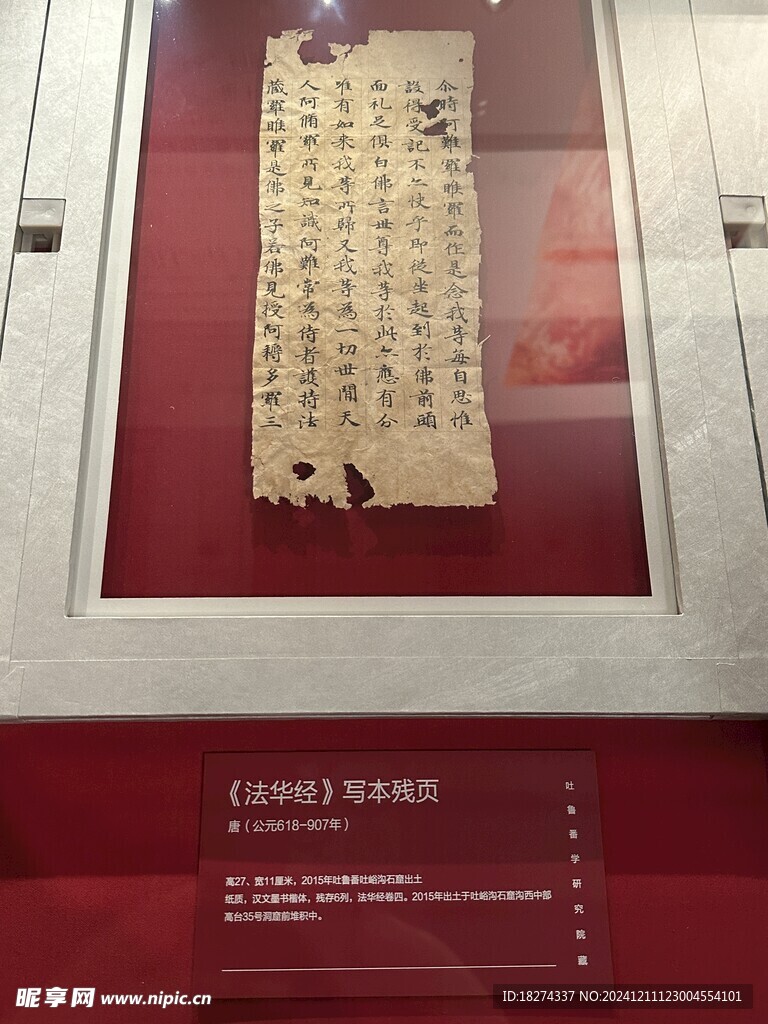 尒時阿難羅睺羅而作是念我等每自思惟
設得受記不亦快乎即從坐起到於佛前頭
面礼足俱白佛言世尊我等於此亦應有分
唯有如来我等所歸又我等為一切世閒天
人阿脩羅所見知識阿難常為侍者護持法
蔵羅睺羅是佛之子若佛見授阿耨多羅三
《法华经》写本残页
唐（公元618-907年）
高27、宽11厘米，2015年吐鲁番吐峪沟石窟出土
纸质，汉文墨书楷体，残存6列，法华经卷四。2015年出土于吐峪沟石窟沟西中部
高台35号洞窟前堆积中。
吐鲁番学研究院藏
昵享网 www.nipic.cn
ID:18274337 NO:20241211123004554101